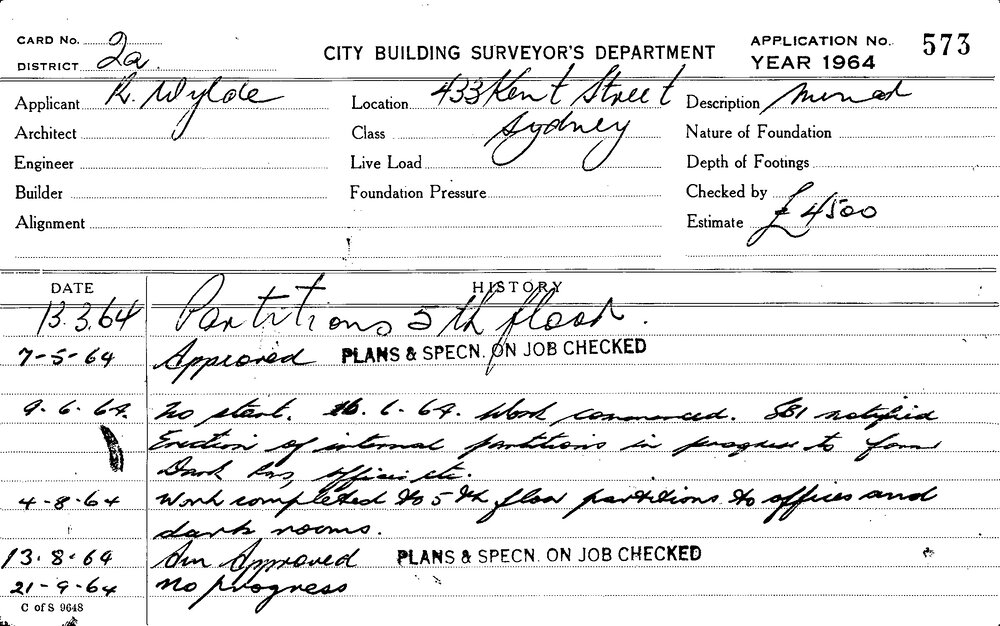 CARD No. 2a
DISTRICT
CITY BUILDING SURVEYOR'S DEPARTMENT
APPLICATION No. 573
YEAR 1964
Applicant R. Wylde
Location 433 Kent Street
Description
Architect
Class Sydney
Nature of Foundation
Engineer
Live Load
Depth of Footings
Builder
Foundation Pressure
Checked by
Alignment
Estimate £4500
DATE HISTORY
13.3.64 Partitions 5th floor.
7-5-64 Approved PLANS & SPECN. ON JOB CHECKED
9.6.64. No start. 16.6.64. Work commenced. SBI notified
Erection of internal partitions in progress to form
Dark Rms, offices etc.
4-8-64 Work completed to 5th floor partitions to offices and
dark rooms.
13.8.64 Am Approved PLANS & SPECN. ON JOB CHECKED
21-9-64 No progress
C of S 9648